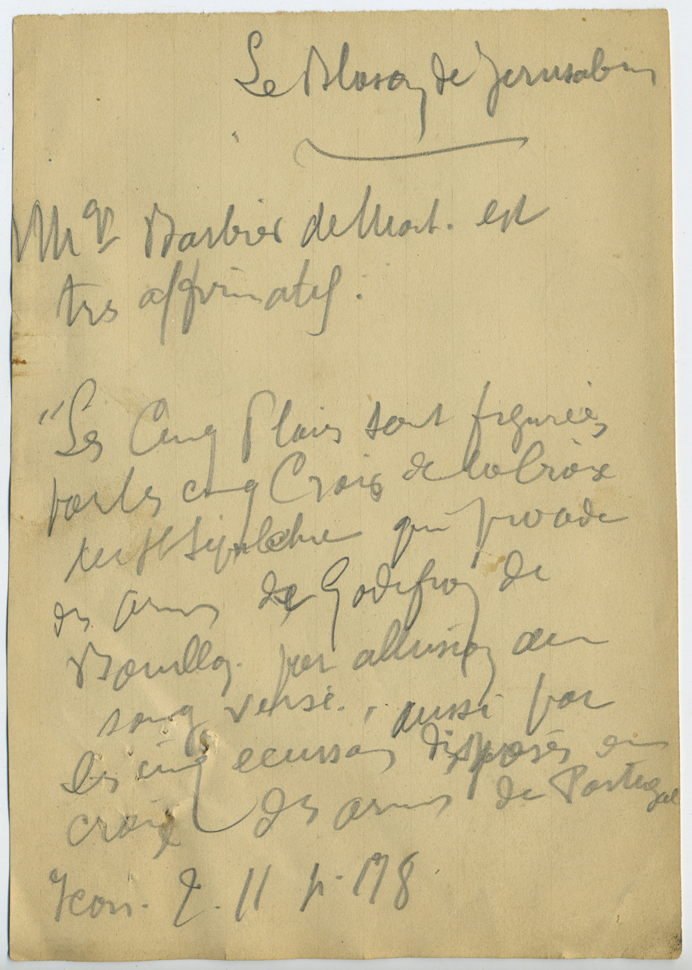 Le Blason de Jerusalem
Mgr Barbier de Mont. est
tres affirmatif.
"Les Cinq Plaies sont figurées
par les cinq Croix de la Croix
du St Sépulchre qui procède
des armes de Godefroy de
Bouillon. par allusion au
sang versé., aussi par
les cinq ecussons disposés en
croix des armes de Portugal
Icon. T. II p. 178